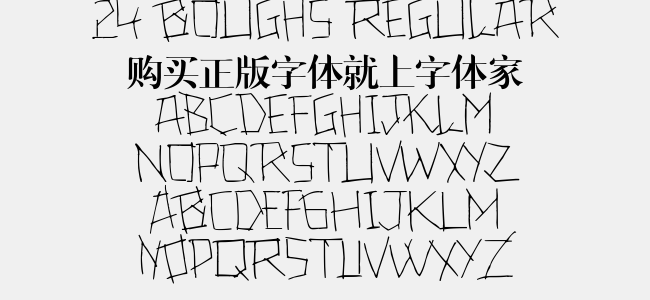 24 BOUGHS REGULAR
购买正版字体就上字体家
ABCDEFGHIJKLM
NOPQRSTUVWXYZ
ABCDEFGHIJKLM
NOPQRSTUVWXYZ